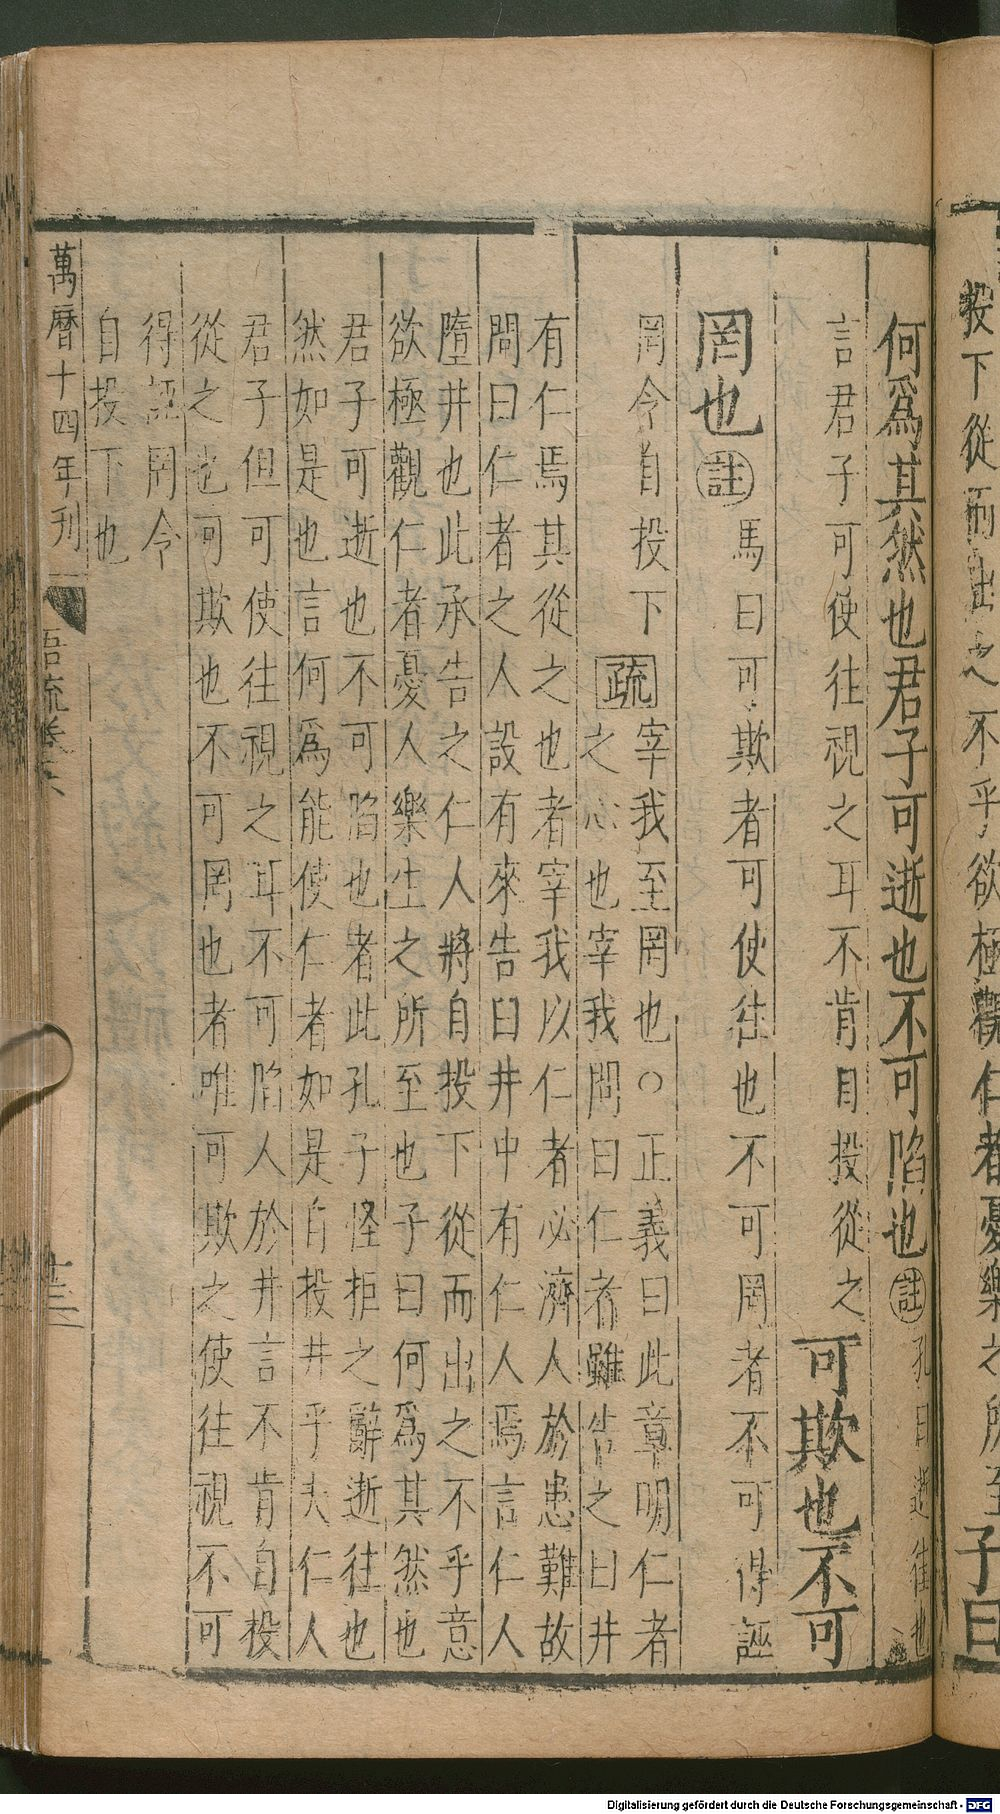 投下從而出之不乎欲極觀仁者憂樂之所至子曰
何爲其然也君子可逝也不可陷也註孔曰逝往也
言君子可使往視之耳不肯自投從之可欺也不可
罔也註馬曰可欺者可使往也不可罔者不可得誣
罔令自投下疏宰我至罔也○正義曰此章明仁者
之心也宰我問曰仁者雖告之曰井
有仁焉其從之也者宰我以仁者必濟人於患難故
問曰仁者之人設有來告曰井中有仁人焉言仁人
墮井也此承告之仁人將自投下從而出之不乎意
欲極觀仁者憂人樂生之所至也子曰何爲其然也
君子可逝也不可陷也者此孔子怪拒之辭逝往也
然如是也言何爲能使仁者如是自投井乎夫仁人
君子但可使往視之耳不可陷人於井言不肯自投
從之也可欺也不可罔也者唯可欺之使往視不可
得誣罔令
自投下也
萬曆十四年刊
吾疏卷六
十三
Digitalisierung gefördert durch die Deutsche Forschungsgemeinschaft - DFG